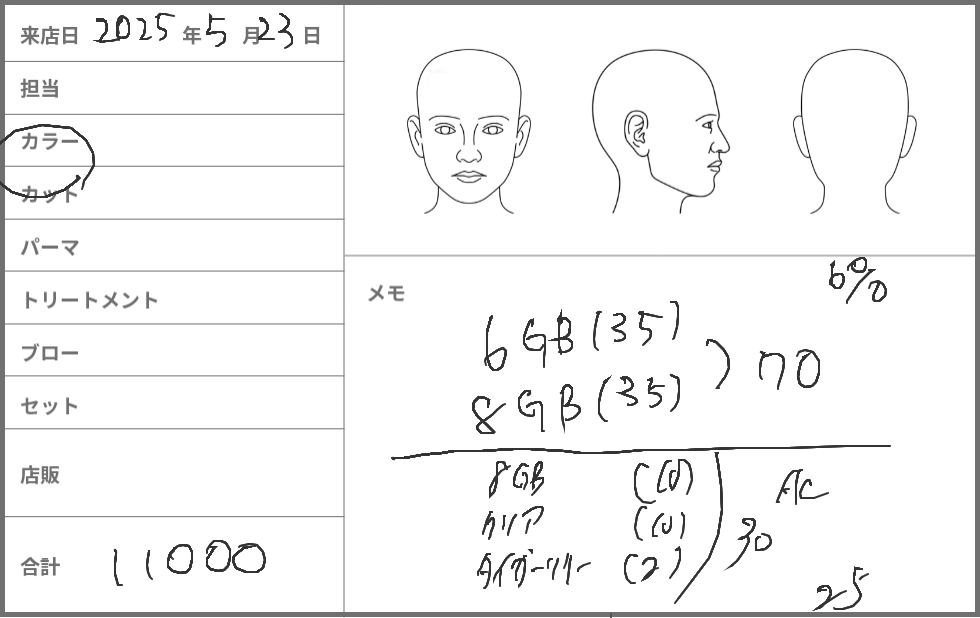 来店日 2025年5月23日
担当
カラー
カット
パーマ
トリートメント
ブロー
セット
店販
合計 11000
メモ
6%
6GB (35)
8GB (35) ) 70
8GB (10) AC
クリア (10) 30
(2)
25